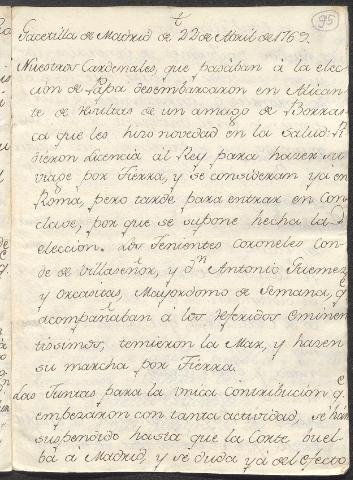 t
95
Gacetilla de Madrid de 22 de Abril de 1769.
Nuestros Cardenales, que pasában á la elec
cion de Papa desembarcaron en Alican
te de Resultas de un amago de Borras
ca que les hizo novedad en la Salud: Pi
dieron Licencia al Rey para hazer su
viage por tierra, y se consideran ya en
Roma, pero tarde para entrar en Con
clave, por que se supone hecha la
eleccion. Los tenientes Coroneles Con
de de Villaseñor, y Dn Antonio Guemez
y Orcasitas, Mayordomo de Semana, q
acompañaban á los referidos Eminen
tissimos, temieron la Mar, y hazen
su marcha por tierra.
Las Juntas para la Unica Contribucion q
empezaron con tanta actividad, se han
suspendido hasta que la Corte buel
ba á Madrid, y se duda yá del efecto